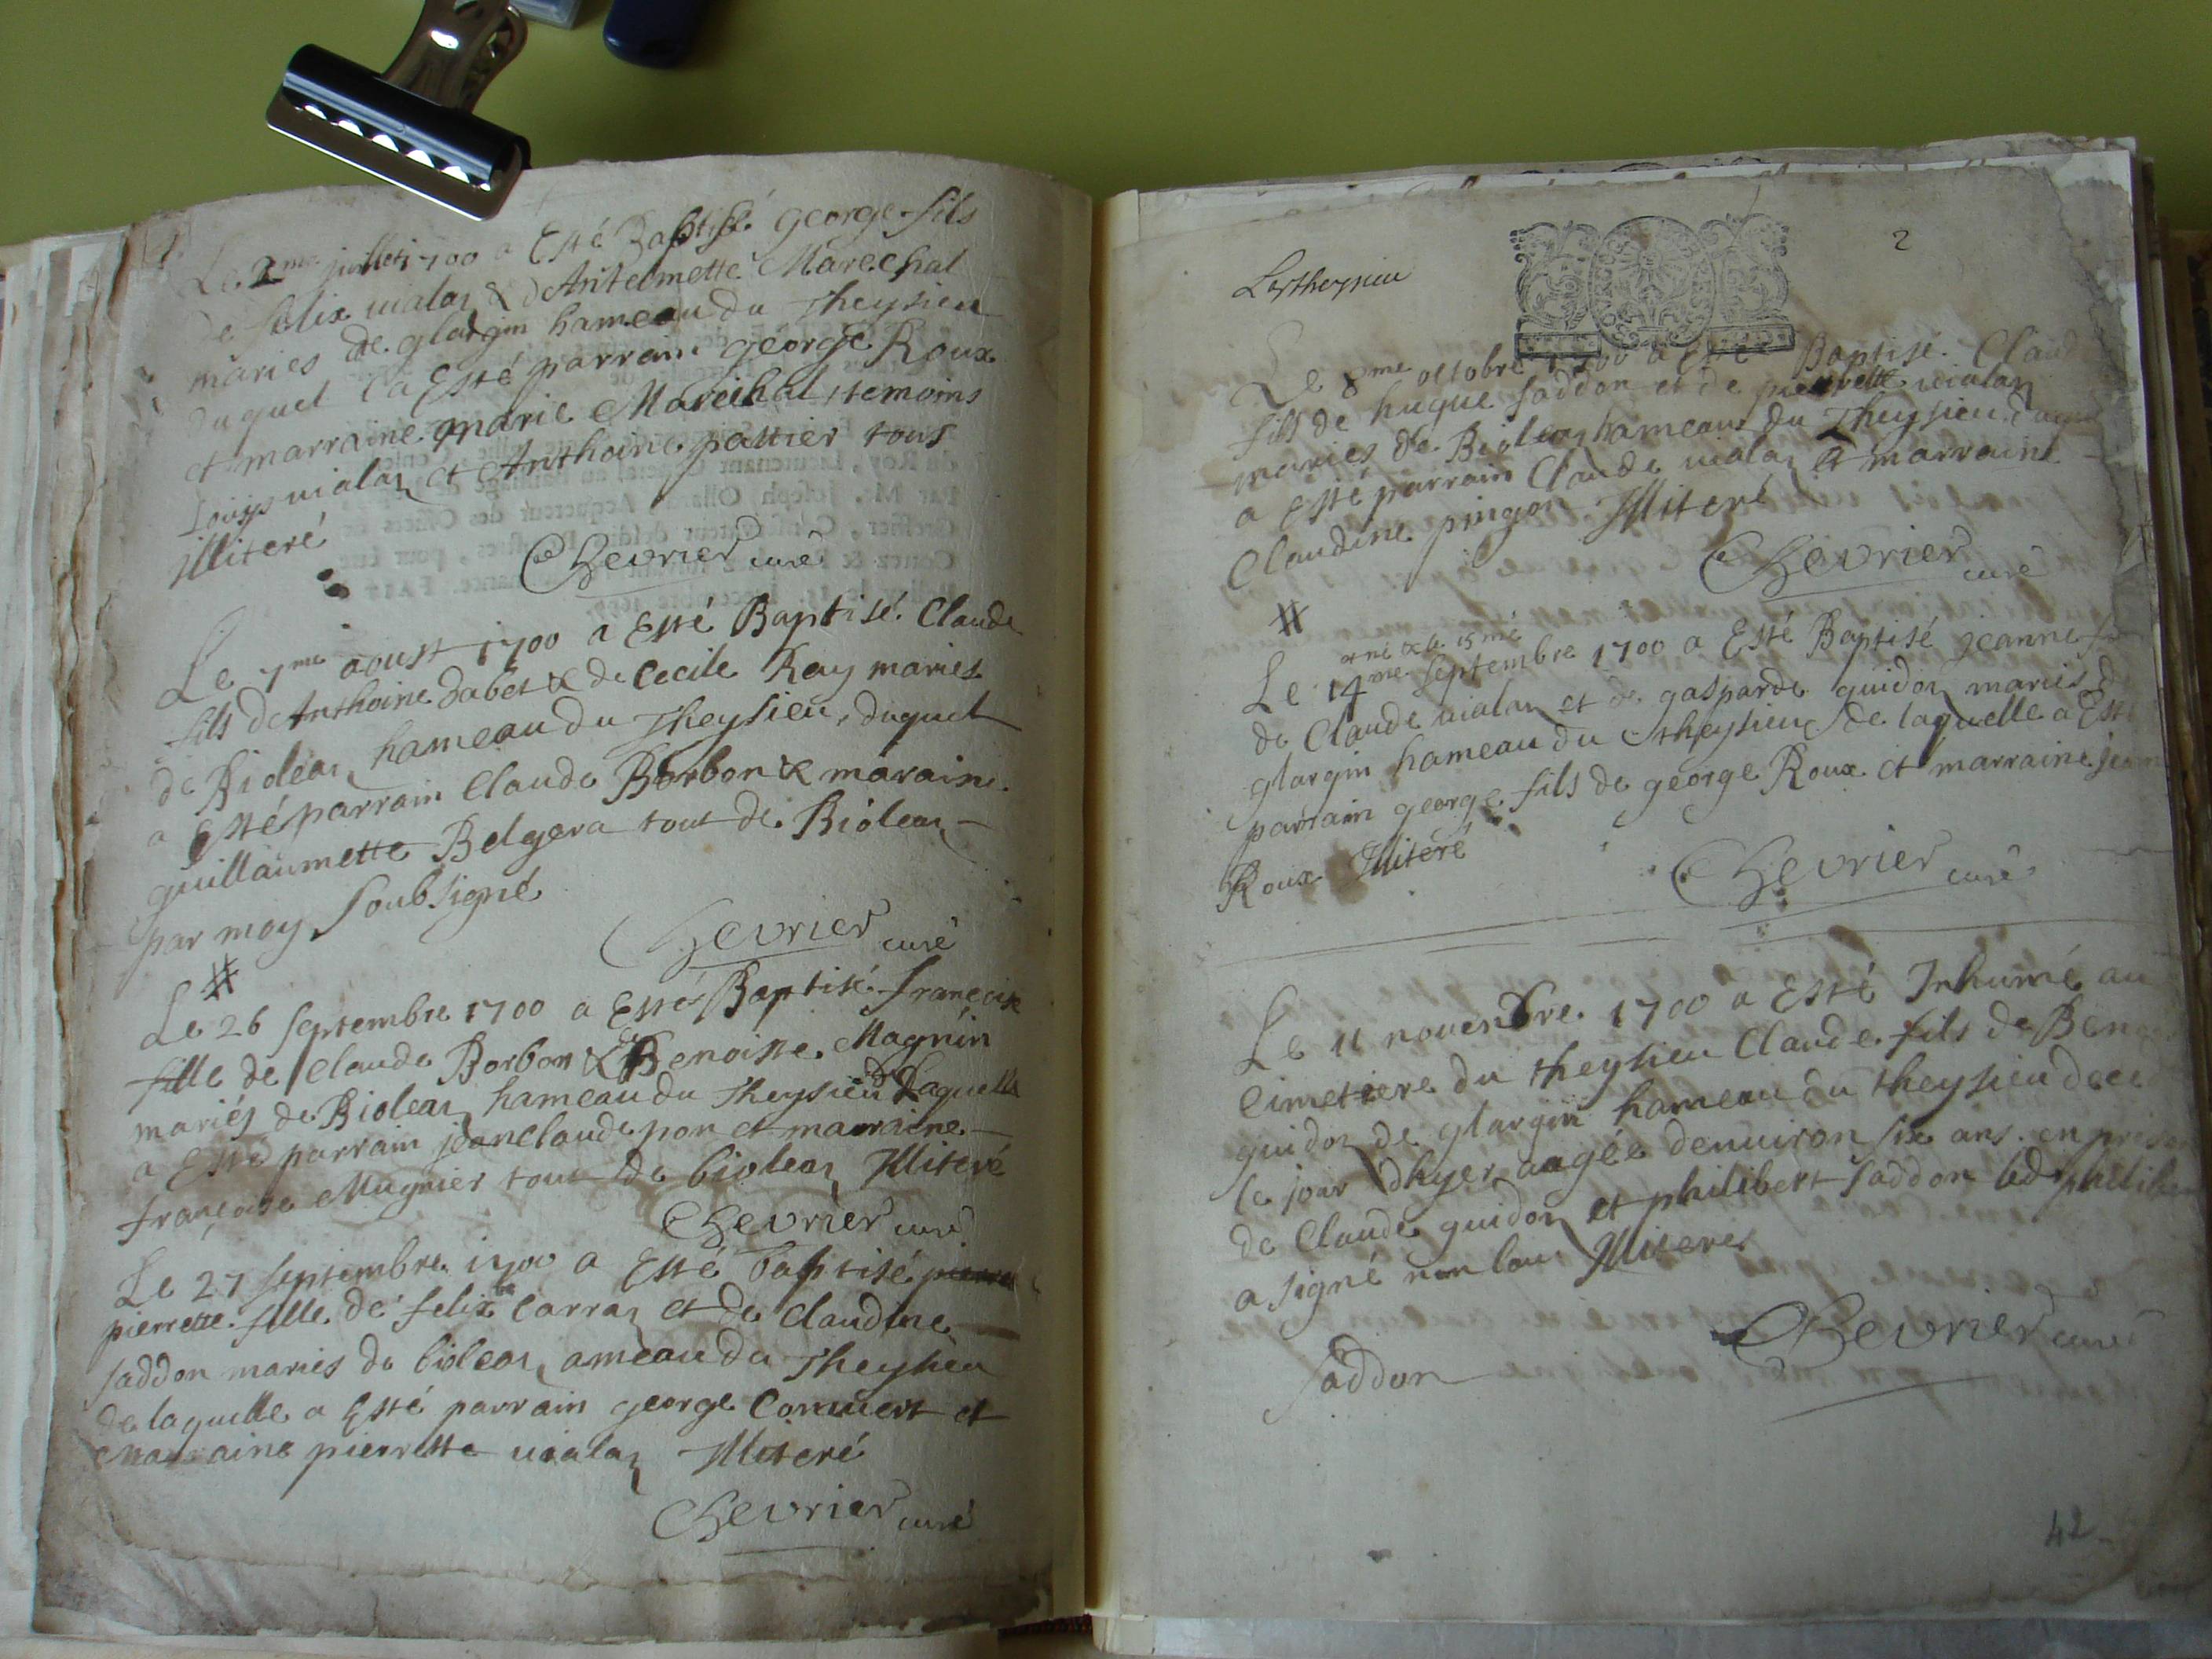 Le 2me juillet 1700 a Esté Baptisé George fils
de felix uialaz & dAntelmette Marechal
mariés de glargin hameau du Theysieu
duquel l'a Esté parrain george Roux
et marraine marie Mareihal, temoins
Louys uialaz et Anthoine pattier tous
illiteré
Chevrier curé
Le 7me aoust 1700 a Esté Baptisé Claude
fils de Anthoine dabet & de Cecile Ray mariés
de Bioleaz hameau du Theysieu, duquel
a Esté parrain Claude Borbon & maraine
guillaumette Belgera tout de Bioleaz
par moy soubsigné
Chevrier curé
#
Le 26 septembre 1700 a Esté Baptisé francoise
fille de Claude Borbon & de Benoiste Magnin
mariés de Bioleaz hameau du Theysieu de Laquelle
a Esté parrain jean claude pon et marraine
françoise Mugnier tous de bioleaz Illiteré
Chevrier curé
Le 27 septembre 1700 a Esté baptisé pierre
pierrette fille de felix Carraz et de Claudine
saddon mariés de bioleaz ameau du Theysieu
de laquelle a Esté parrain george Conuert et
Marraine pierrette uialaz Illiteré
Chevrier curé
2
Leytheyrieu
Le 8me octobre 1700 a Esté Baptisé Claud
fils de hugue saddon et de pierrette uialaz
mariés de Bioleaz hameau du Theysieu, duquel
a Esté parrain Claude uialaz et marraine
Claudine pingon Illiteré
Chevrier curé
#
et né le 15me
Le 14me septembre 1700 a Esté Baptisé jeanne
de Claude uialaz et de gasparde guidoz mariés de
glargin hameau du theysieu de laquelle a Esté
parrain george fils de george Roux et marraine jeann
Roux Illiteré
Chevrier curé
Le 11 nouembre 1700 a Esté Inhumé au
Cimetiere du theysieu Claude fils de Ben
guidoz de glargin hameau du theysieu dece
le jour dhyer aagée denuiron six ans en presen
de Claude guidoz et philibert saddon led philiber
a signé non lau Illiteres
Chevrier curé
saddon
42